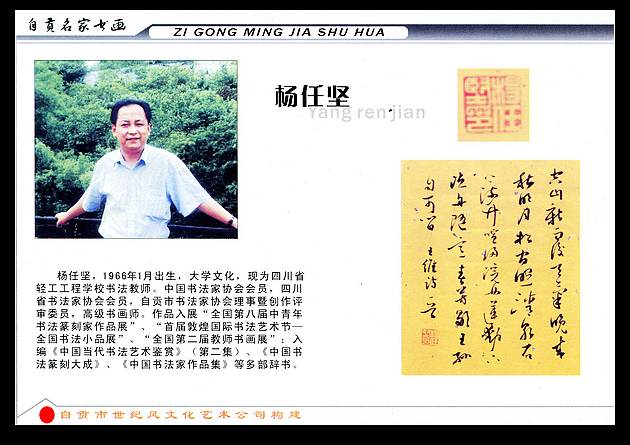 自贡名家书画
ZI GONG MING JIA SHU HUA
杨任坚
Yang renjian
杨任坚，1966年1月出生，大学文化，现为四川省
轻工工程学校书法教师。中国书法家协会会员，四川
省书法家协会会员，自贡市书法家协会理事暨创作评
审委员，高级书画师。作品入展“全国第八届中青年
书法篆刻家作品展”、“首届敦煌国际书法艺术节—
全国书法小品展”、“全国第二届教师书画展”；入
编《中国当代书法艺术鉴赏》（第二集）、《中国书
法篆刻大成》、《中国书法家作品集》等多部辞书。
空山新雨后天气晚来
秋明月松间照清泉石
上流竹喧归浣女莲动下
渔舟随意春芳歇王孙
自可留 王维诗一首
自贡市世纪风文化艺术公司构建